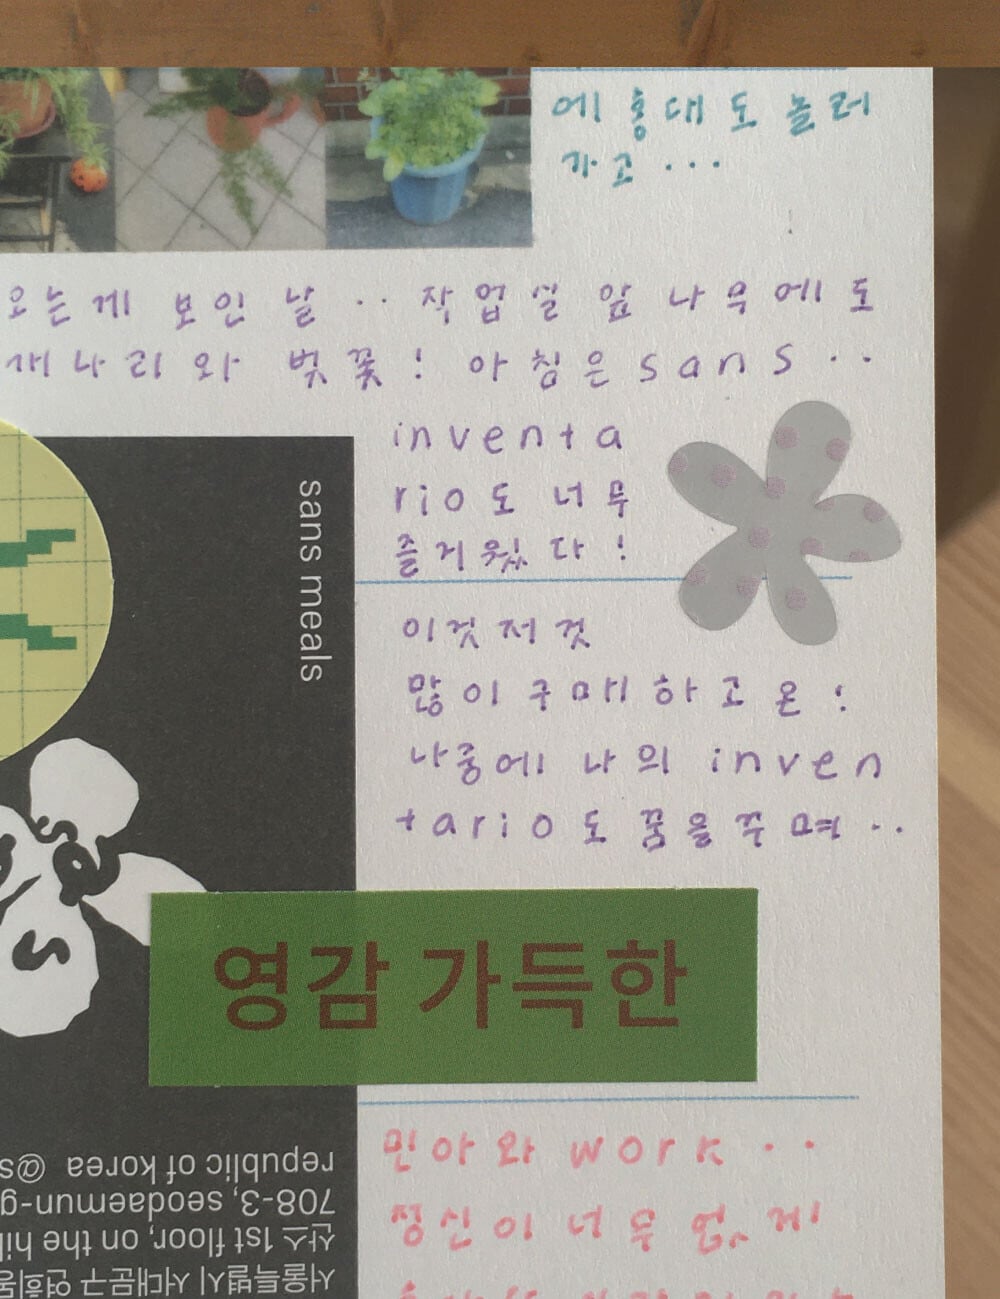 에 홍대도 놀러
가고...
오는게 보인 날.. 작업실 앞 나무에도
개나리와 벚꽃! 아침은 sans..
inventa
rio도 너무
즐거웠다!
sans meals
이것저것
많이 구매하고 온!
나중에 나의 inven
tario도 꿈을 꾸며..
sans
영감 가득한
민아와 work..
정신이 너무 없게
서울특별시 서대문구 연희동
산스 1st floor, on the hil
708-3, seodaemun-g
republic of korea @s